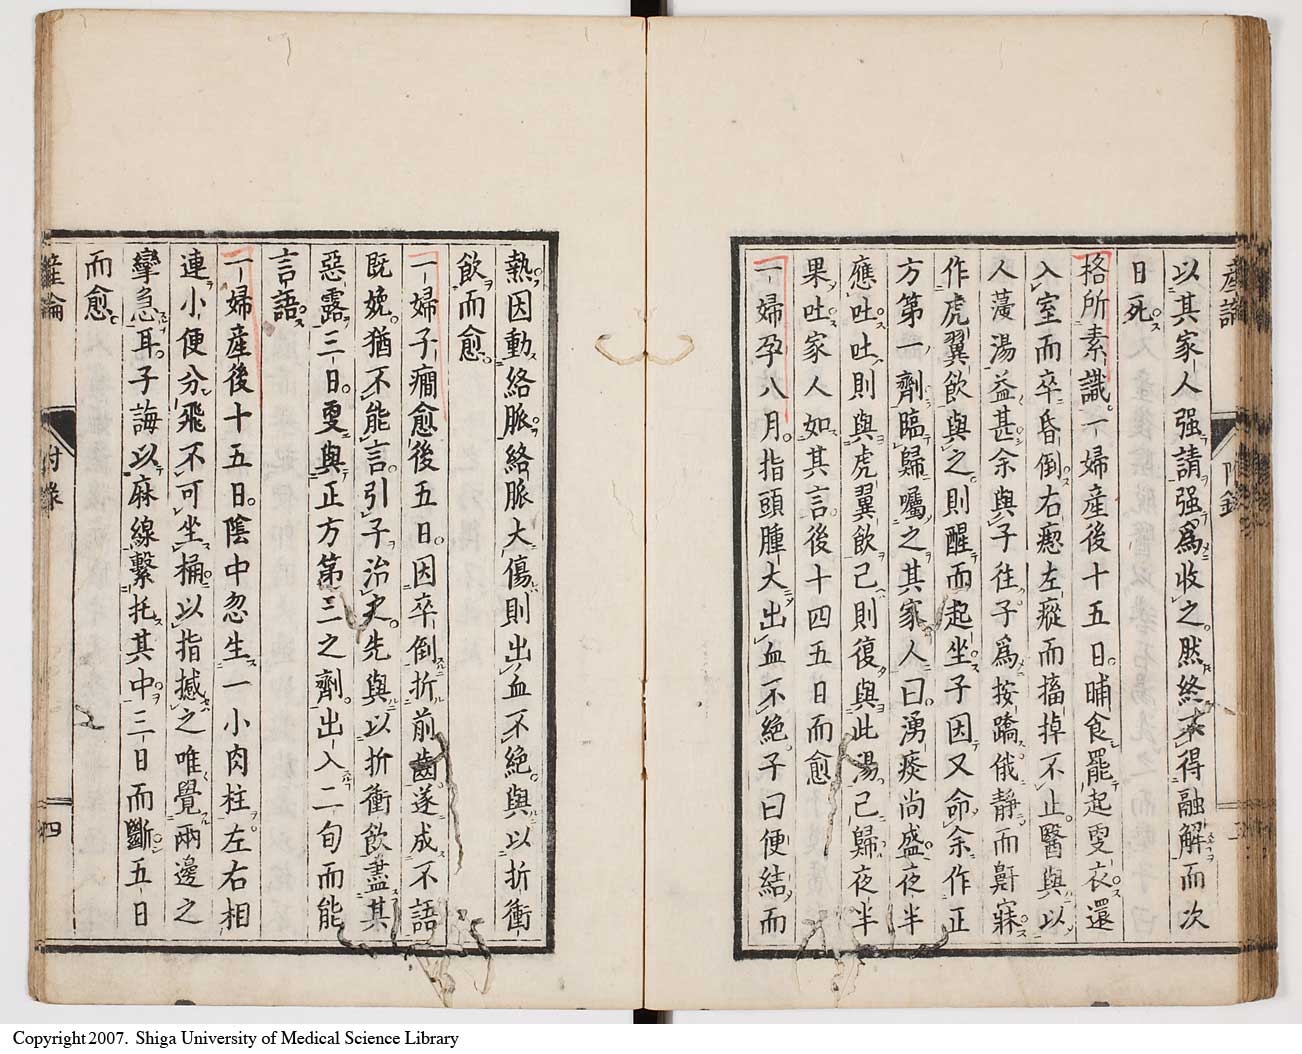 以其家人强請强爲收之然終不得融解而次
日死
格所素識一婦產後十五日晡食罷起更衣還
入室而卒昏倒右瘛左瘲而搐掉不止醫與以
人葠湯益甚余與子往子爲按蹻俄靜而鼾寐
作虎翼飲與之則醒而起坐子因又命余作正
方第一劑臨歸囑之其家人曰湧痰尚盛夜半
應吐吐則與虎翼飲已則復與此湯已歸夜半
果吐家人如其言後十四五日而愈
一婦孕八月指頭腫大出血不絶子曰便結而
熱因動絡脈絡脈大傷則出血不絶與以折衝
飲而愈
一婦子癇愈後五日因卒倒折前齒遂成不語
既娩猶不能言引子治之先與以折衝飲盡其
惡露三日更與正方第三之劑出入二旬而能
言語
一婦產後十五日陰中忽生一小肉柱左右相
連小便分飛不可坐桶以指撼之唯覺兩邊之
攣急耳子誨以麻線繫托其中三日而斷五日
而愈
產論
附錄
四
Copyright 2007. Shiga University of Medical Science Library